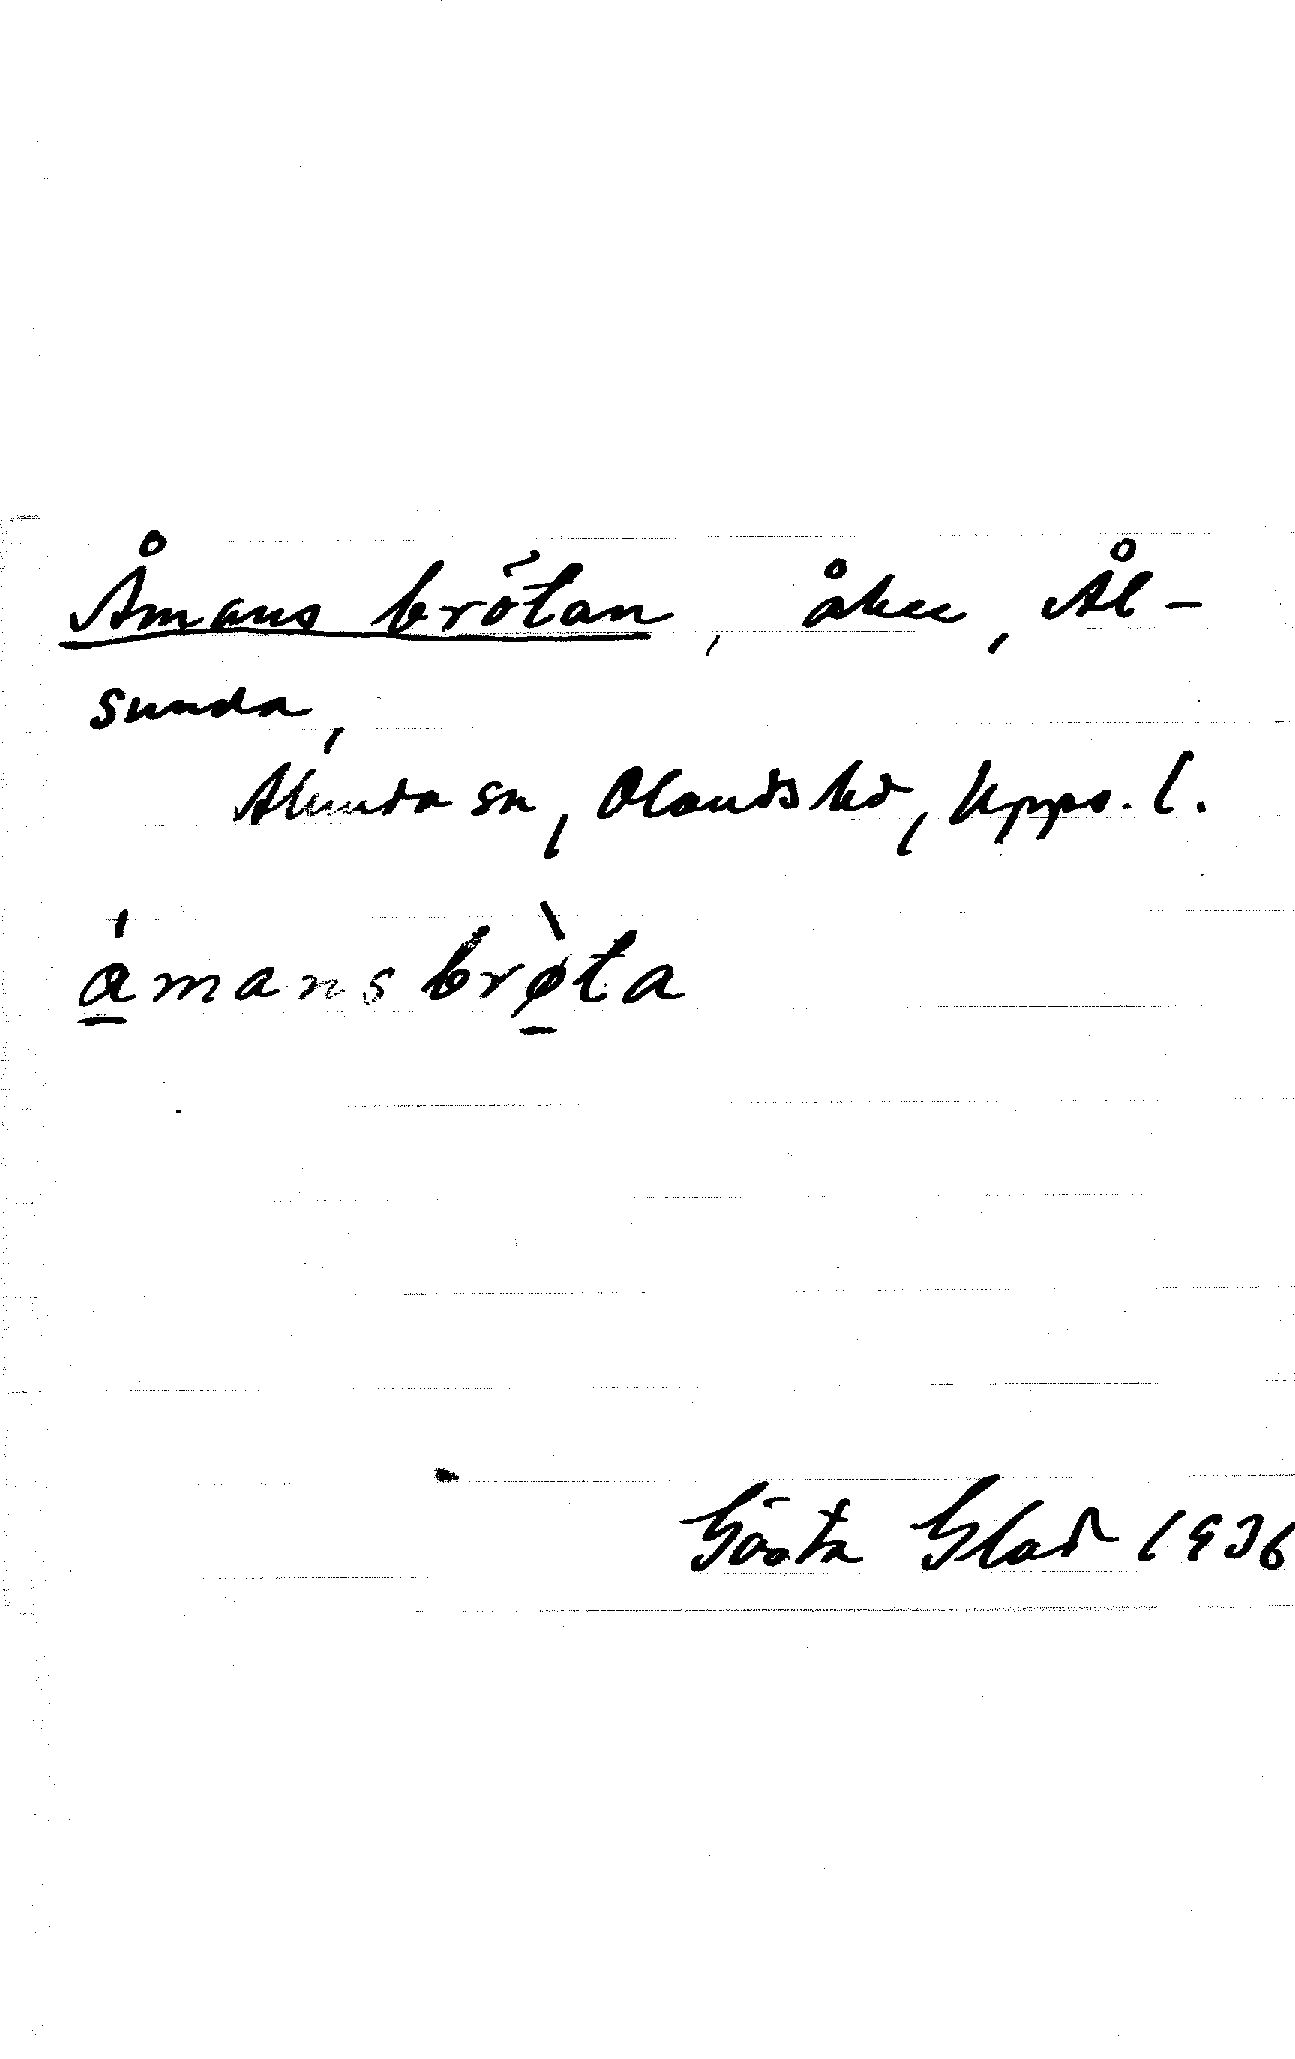 Åmans brötan, åker, Ål-
sunda,
Alunda sn, Olands hd, Upps. l.
åmansbrø̀ta
Gösta Glad 1936